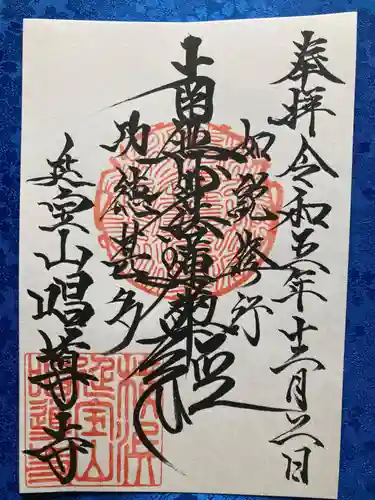 奉拝 令和五年十二月六日
如説修行
南無妙法蓮華経
功徳甚多
延宝山唱導寺